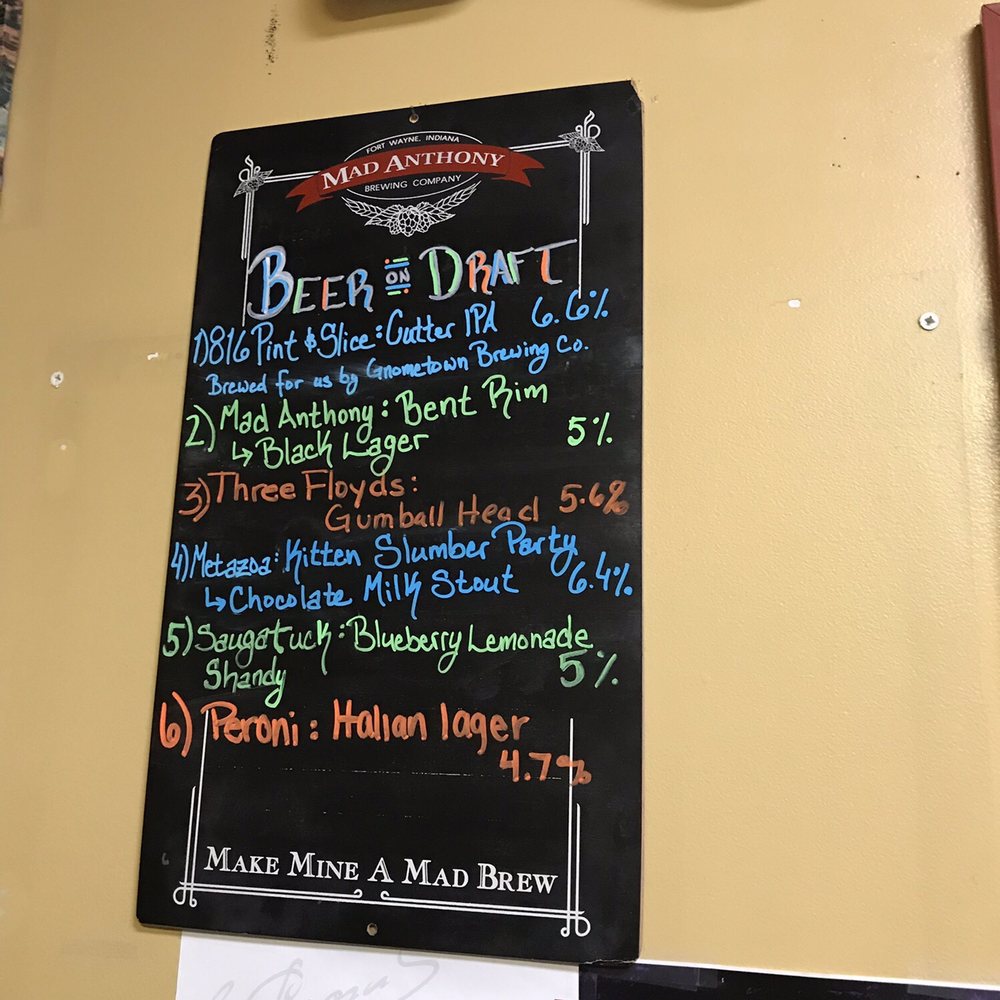 FORT WAYNE, INDIANA
MAD ANTHONY
BREWING COMPANY
BEER ON DRAFT
1) 816 Pint & Slice: Gutter IPA 6.6%
Brewed for us by Gnometown Brewing Co.
2) Mad Anthony: Bent Rim
↳ Black Lager 5%
3) Three Floyds:
Gumball Head 5.6%
4) Metazoa: Kitten Slumber Party
↳ Chocolate Milk Stout 6.4%
5) Saugatuck: Blueberry Lemonade
Shandy 5%
6) Peroni: Italian lager
4.7%
MAKE MINE A MAD BREW